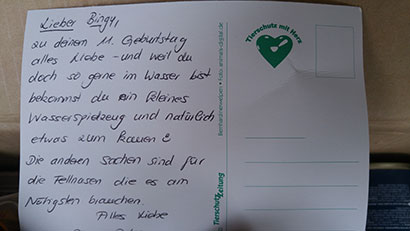 Lieber Bingy,
zu deinem 11. Geburtstag
alles Liebe - und weil du
doch so gerne im Wasser bist
bekommst du ein kleines
Wasserspielzeug und natürlich
etwas zum Kauen
Die anderen Sachen sind für
die Fellnasen die es am
Nötigsten brauchen.
Alles Liebe
Tierschutz mit Herz
Bernhardinerwelpen • Foto: animals-digital.de
TierschutzZeitung